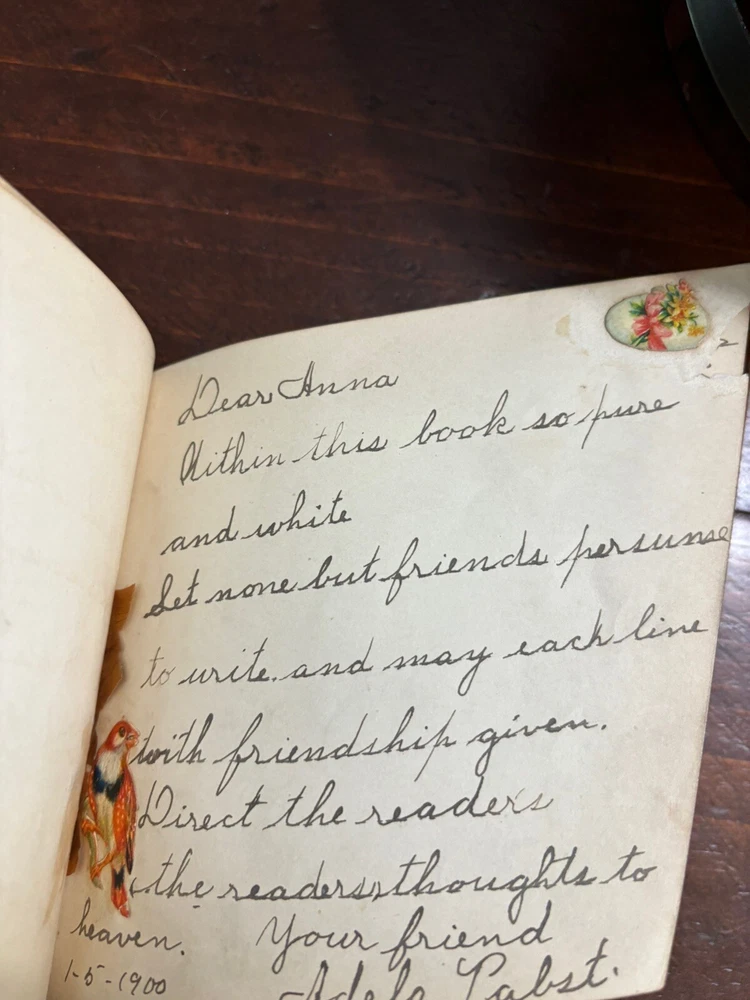 Dear Anna
Within this book so pure
and white
Let none but friends persume
to write. and may each line
with friendship given.
Direct the readers
the readers thoughts to
heaven. Your friend
1-5-1900 Adele Pabst.